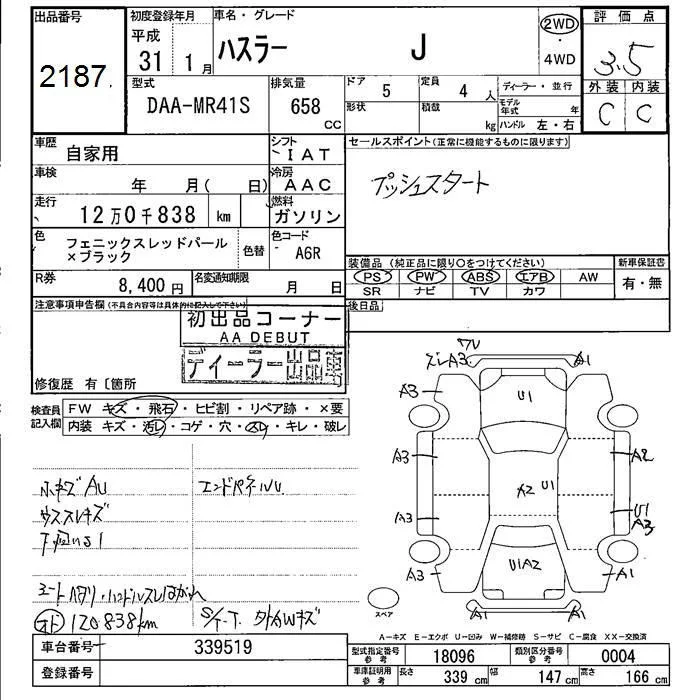 出品番号
2187
初度登録年月
平成
31 1月
車名・グレード
ハスラー J
2WD
・
4WD
評価点
3.5
外装 内装
C C
型式
DAA-MR41S
排気量
658 CC
ドア 5
定員 4 人
形状
積載 kg
ディーラー・並行
モデル年式 年
ハンドル 左・右
車歴 自家用
シフト IAT
車検 年 月( 日)
冷房 AAC
走行 12万0千838 km
燃料 ガソリン
色 フェニックスレッドパール
×ブラック
色替
色コード A6R
R券 8,400円
名変通知期限 月 日
セールスポイント(正常に機能するものに限ります)
プッシュスタート
装備品 (純正品に限り○をつけてください)
新車保証書
PS PW ABS エアB AW
SR ナビ TV カワ
有・無
後日品
注意事項申告欄(不具合内容等は具体的に記入して下さい)
初出品コーナー
AA DEBUT
ディーラー出品車
修復歴 有〔箇所
検査員
記入欄
FW キズ・飛石・ヒビ割・リペア跡・×要
内装 キズ・汚レ・コゲ・穴・スレ・キレ・破レ
小キズAU
ウススレキズ
下回りS1
エンドパネルU
120838km
S/T-T. 外AWキズ
ワレ
ズレA3
A1
A3
U1
A3
A2
A2 U1
A3
U1
A3
A3
U1A2
A1
A1
A1
スペア
A-キズ E-エクボ U-凹み W-補修跡 S-サビ C-腐食 XX-交換済
車台番号 339519
登録番号
型式指定番号
参考
18096
類別区分番号
参考
0004
車庫証明用
参考
長さ 339 cm
幅 147 cm
高さ 166 cm